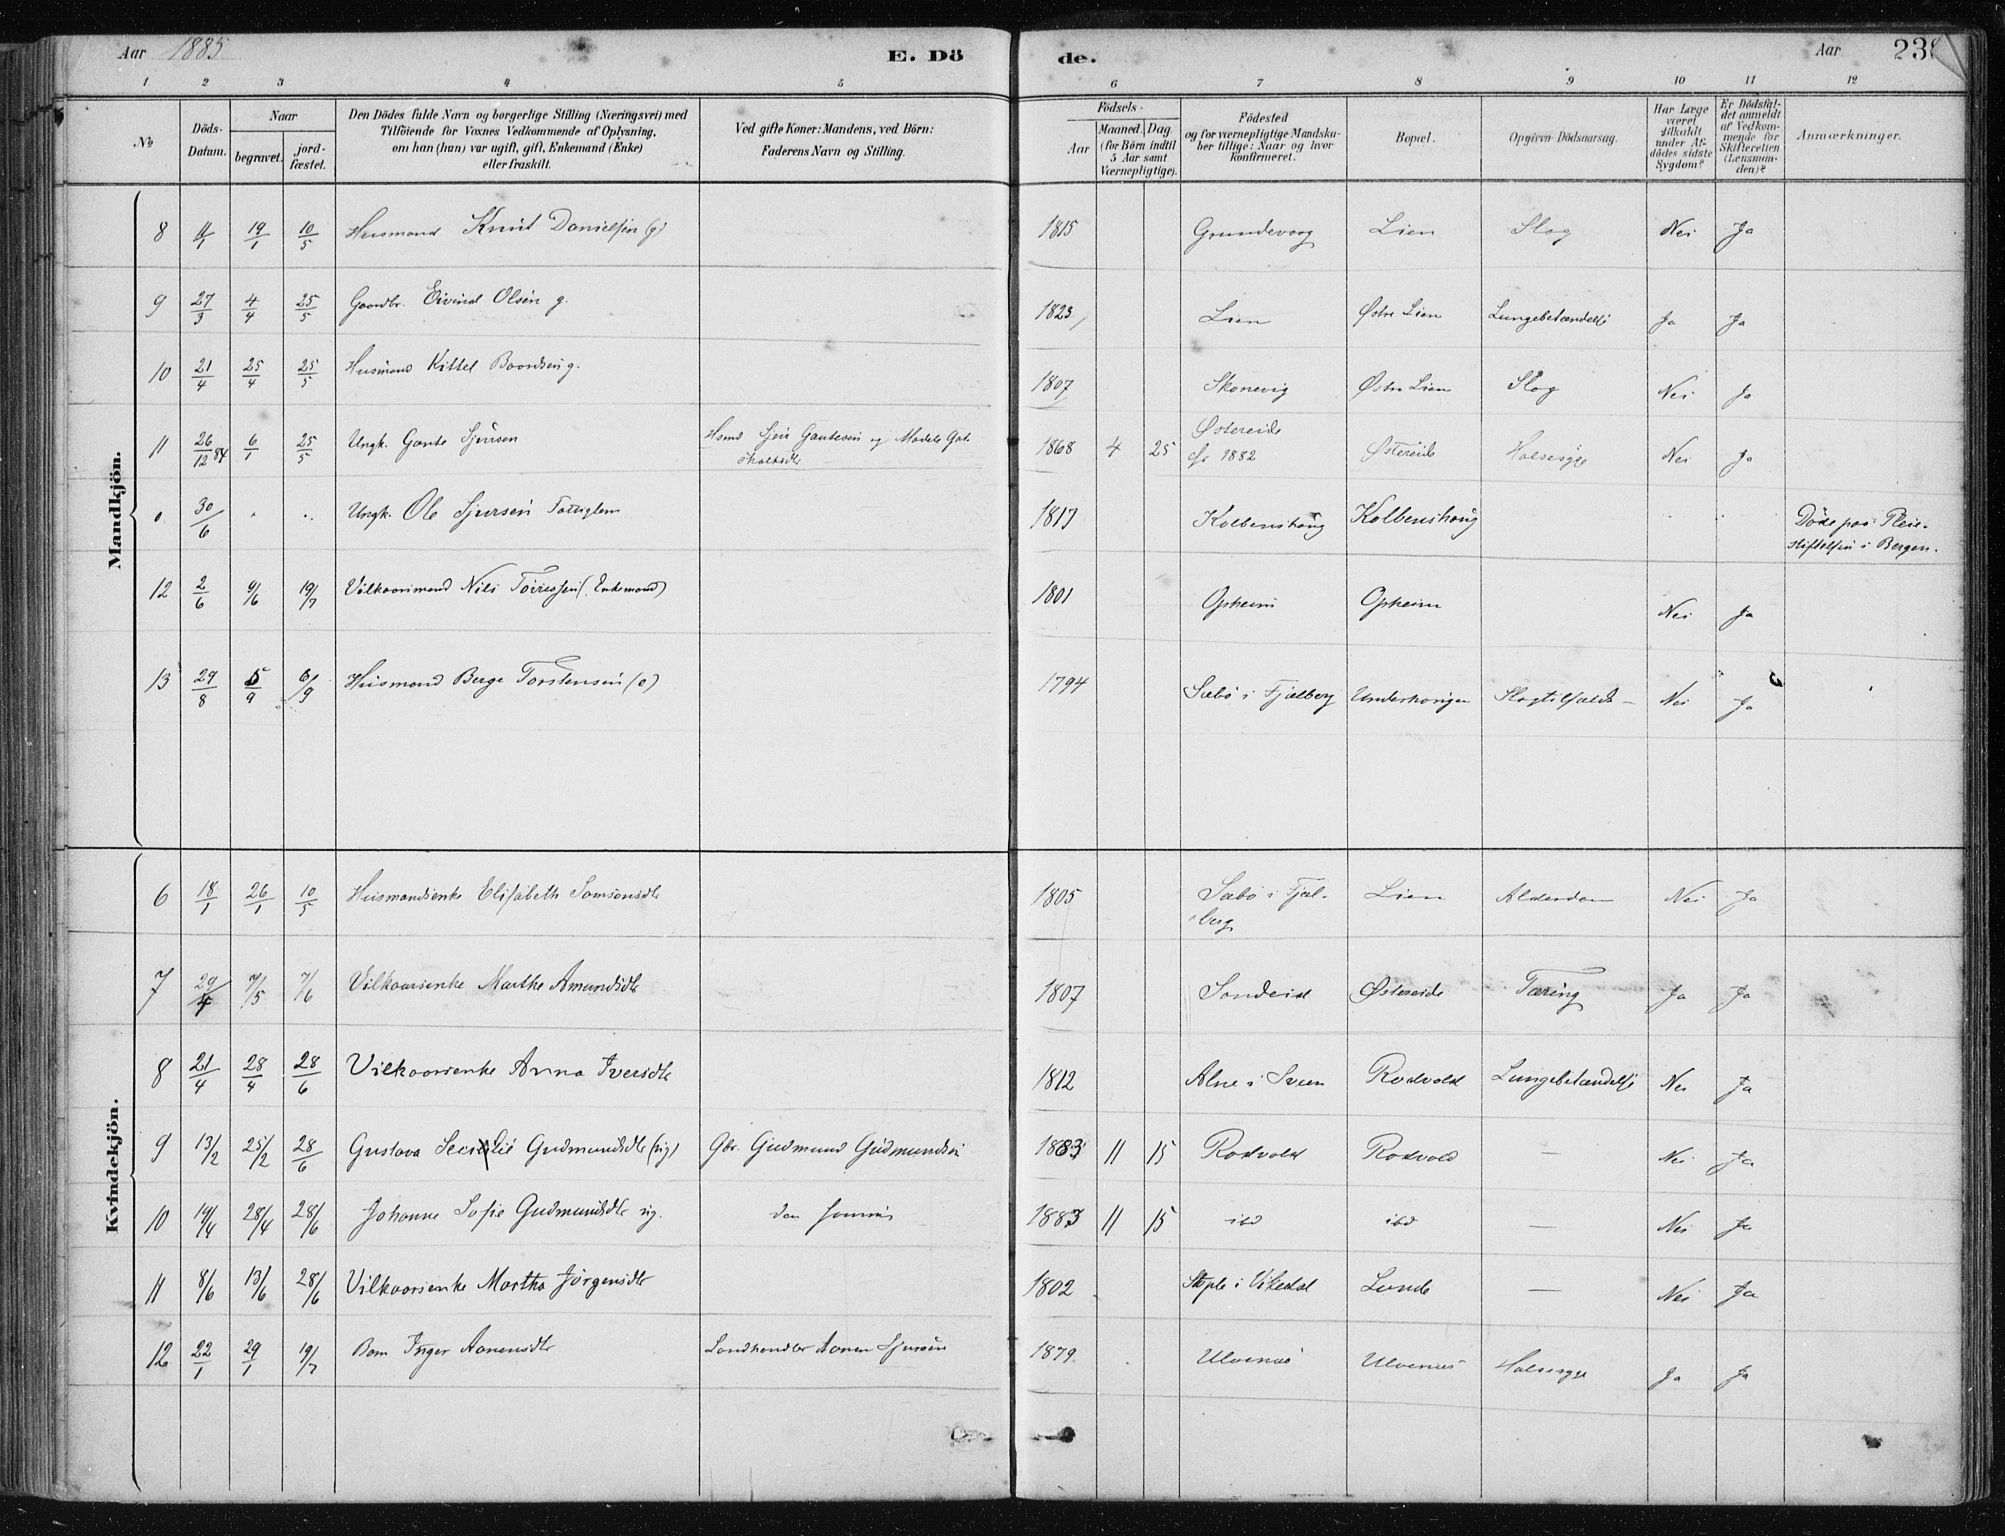 Aar 1885 E. Dö de. Aar 238
1 2 3 4 5 6 7 8 9 10 11 12
No
Döds-
Datum.
Naar
begravet.
jord-
fæstet.
Den Dödes fulde Navn og borgerlige Stilling (Næringsvei) med
Tilföiende for Voxnes Vedkommende af Oplysning,
om han (hun) var ugift, gift, Enkemand (Enke)
eller fraskilt.
Ved gifte Koner: Mandens, ved Börn:
Faderens Navn og Stilling.
Födsels-
Aar
Maaned. Dag.
(for Börn indtil
5 Aar samt
Værnepligtige).
Födested
og for værnepligtige Mandska-
ber tillige: Naar og hvor
konfirmeret.
Bopæl.
Opgiven Dödsaarsag.
Har Læge
været
tilkaldt
under Af-
dödes sidste
Sygdom?
Er Dödsfal-
det anmeldt
af Vedkom-
mende for
Skifteretten
(Lensman-
den)?
Anmærkninger.
Mandkjön.
8 11/1 19/1 10/5 Husmand Knut Danielsen (g) 1815 Grundevaag Lien Slag Nei Ja
9 27/3 4/4 25/5 Gaardbr. Eivind Olsen g. 1823 Lien Østre Lien Lungebetændelse Ja Ja
10 21/4 25/4 25/5 Husmand Kittel Baardsen g. 1807 Skonevig Østre Lien Slag Nei Ja
11 26/12 84 6/1 25/5 Ungk. Gaute Sjursen Hsmd Sjur Gautesen og 1868 4 25 Østereide
cfr 1882 Østereide Halssyge Nei Ja
0 30/6 " " Ungk. Ole Sjursen Fattiglem 1817 Kolbenshaug Kolbenshaug Döde paa Pleie-
stiftelsen i Bergen.
12 2/6 9/6 19/7 Vilkaarsmand Nils Torressen (Enkemand) 1801 Opheim Opheim Nei Ja
13 29/8 5/9 6/9 Husmand Berge Torstensen (e) 1794 Sæbö i Fjælberg Underhaugen Slagtilfælde – Nei Ja
Kvindekjön.
6 18/1 26/1 10/5 Husmandsenke Elisabeth Samsonsdtr 1805 Sæbö i Fjæl-
berg Lien Alderdom Nei Ja
7 29/4 7/5 7/6 Vilkaarsenke Marthe Amundsdtr 1807 Sandeid Østereide Tæring Ja Ja
8 21/4 28/4 28/6 Vilkaarsenke Anna Iversdtr 1812 Alne i Sveen Rødvold Lungebetændelse Nei Ja
9 13/2 25/2 28/6 Gustava Gudmundsdtr (ug) Gbr. Gudmund Gudmundsen 1883 11 15 Rodvold Rodvold — Nei Ja
10 19/4 28/4 28/6 Johanne Sofie Gudmundsdtr ug. den samme 1883 11 15 ibd ibd — Nei Ja
11 8/6 13/6 28/6 Vilkaarsenke Martha Jörgensdtr 1802 Stople i Vikedal Lunde — Nei Ja
12 22/1 29/1 19/7 Barn Inger Aanensdtr Landhandler Aanen Sjursen 1879 Ulvenæs Ulvenæs Halssyge Ja Ja